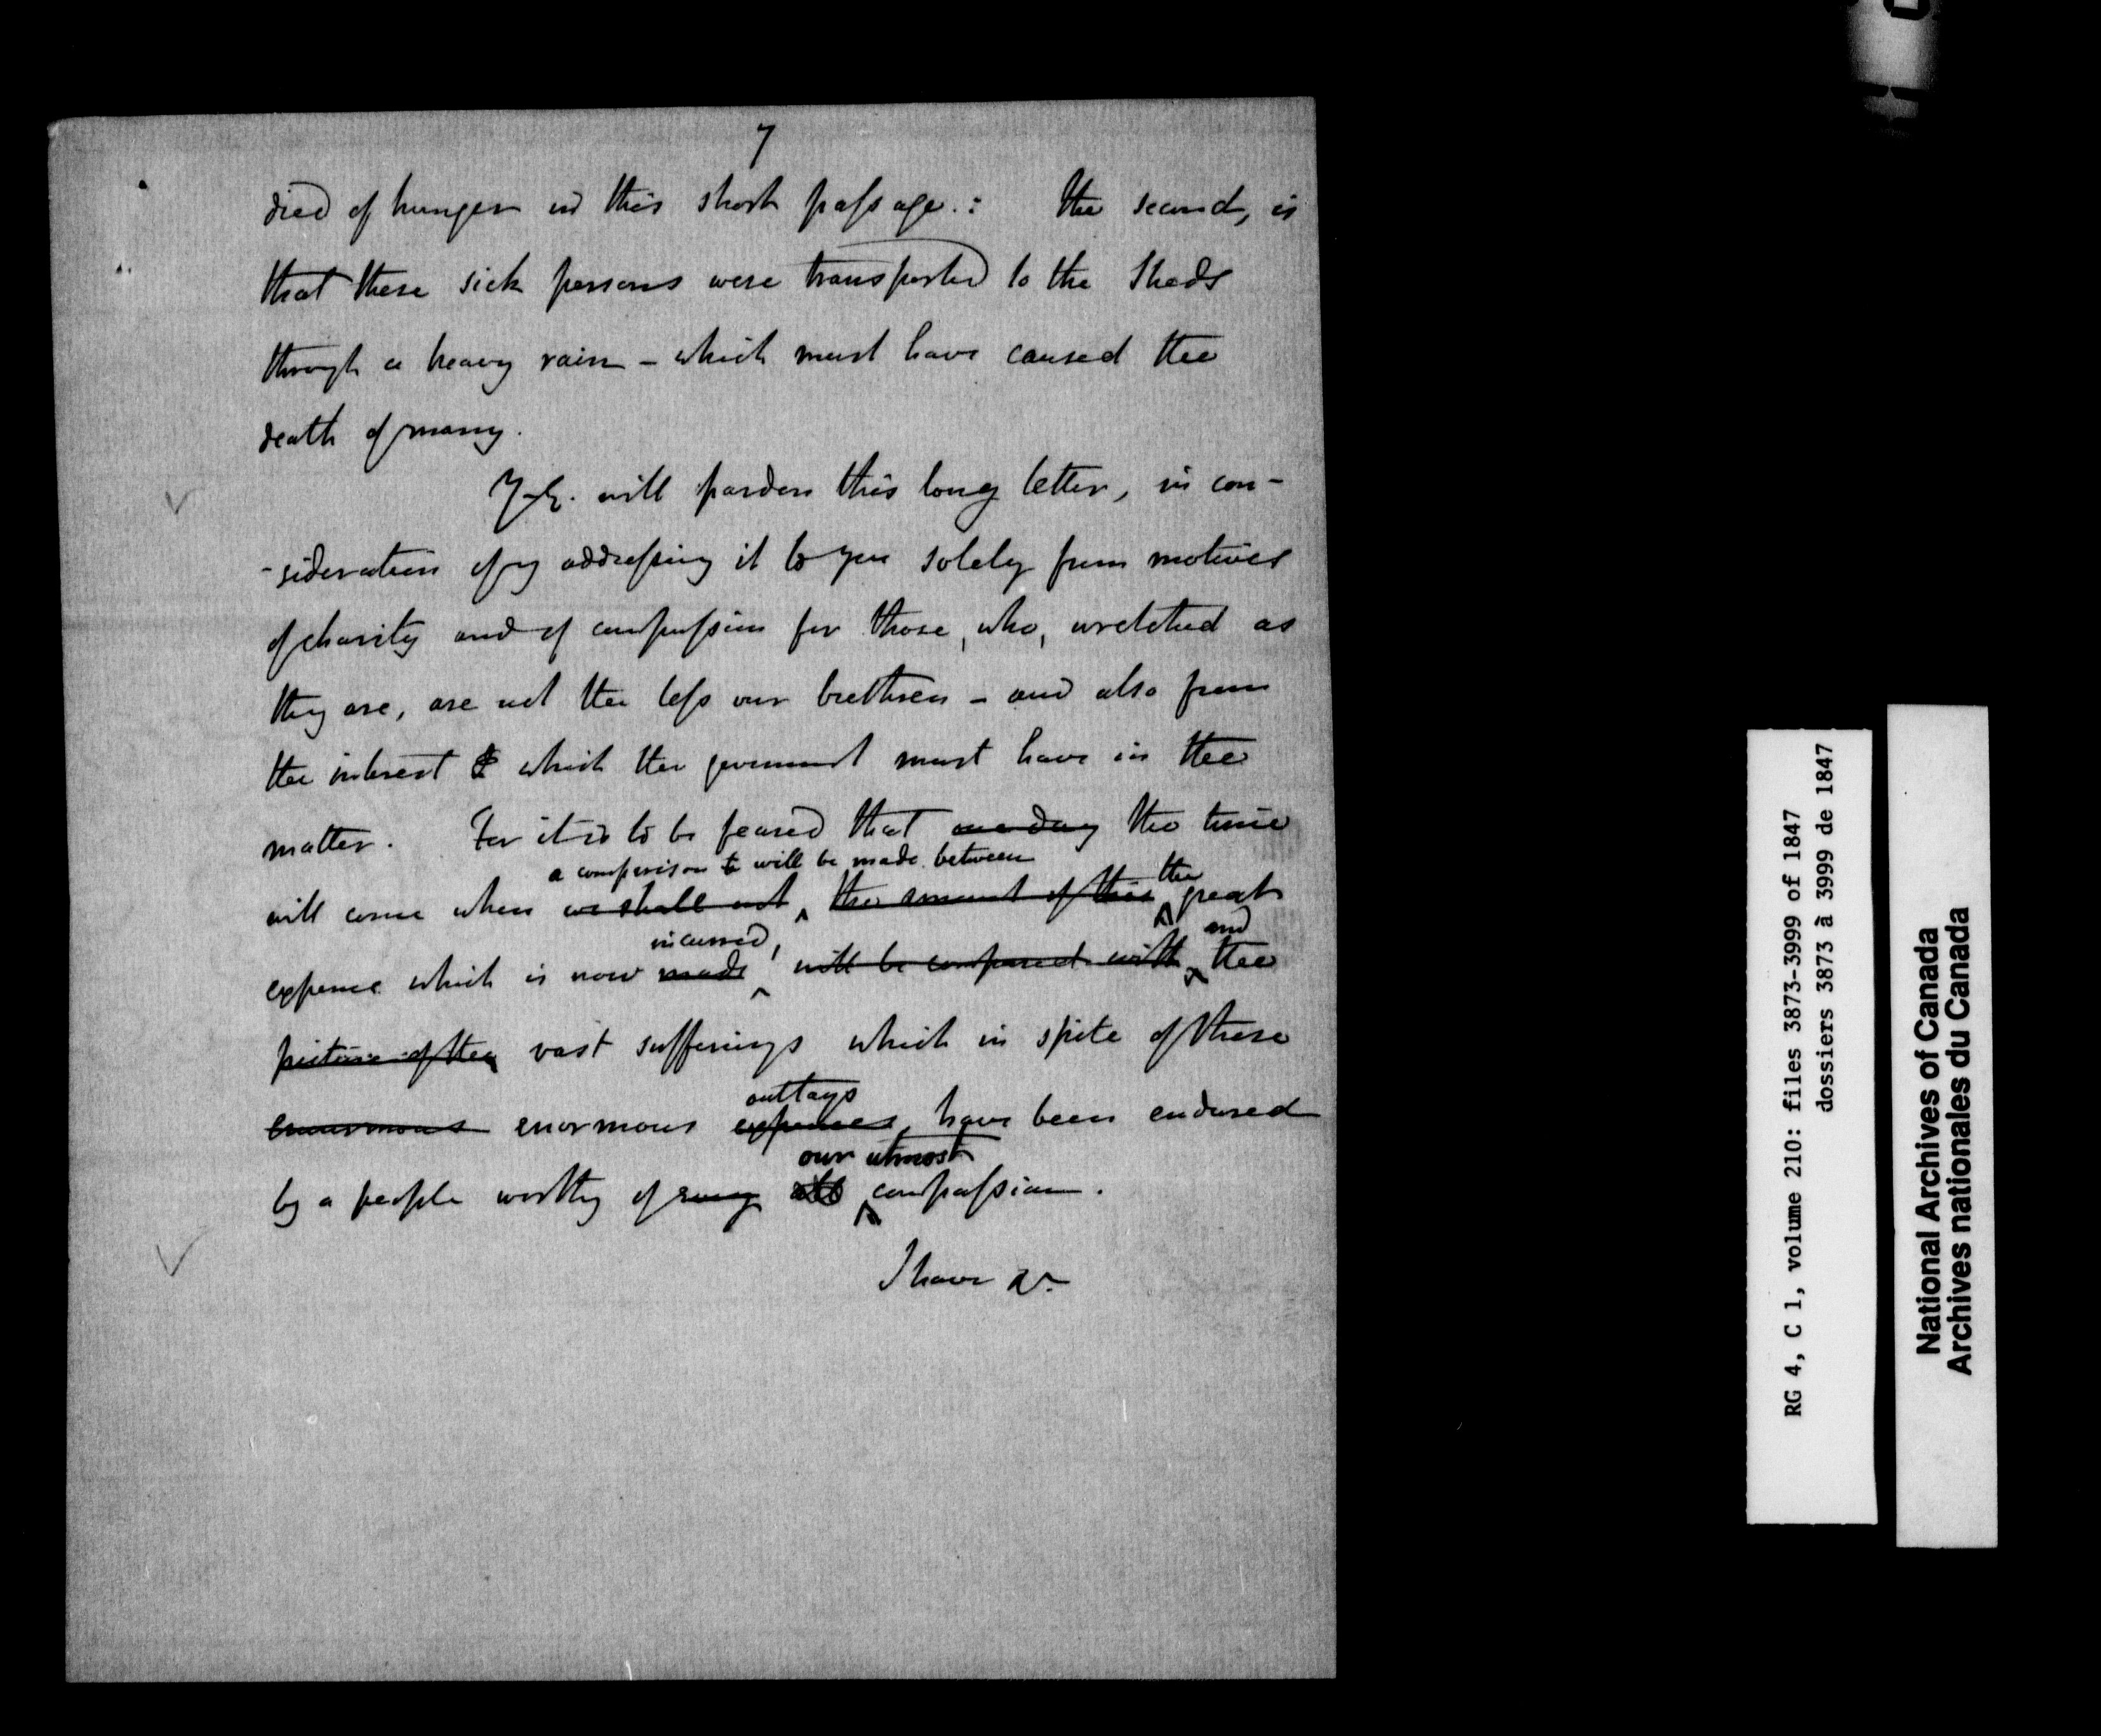 7
died of hunger in this short passage.: the second, is
that these sick persons were transported to the Sheds
through a heavy rain - which must have caused the
death of many.
Y. E. will pardon this long letter, in con-
-sideration of my addressing it to you solely from motives
of charity and of compassion for those, who, wretched as
they are, are not the less our brethren - and also from
the interest which the government must have in the
matter. For it is to be feared that one day the time
a comparison to will be made between
will come when we shall not the amount of this the great
incurred, and
expense which is now made will be compared with the
picture of the vast sufferings which in spite of these
outlays
enourmous enormous expenses, have been endured
our utmost
by a people worthy of all compassion.
I have &c.
RG 4, C 1, volume 210: files 3873-3999 of 1847
dossiers 3873 à 3999 de 1847
National Archives of Canada
Archives nationales du Canada